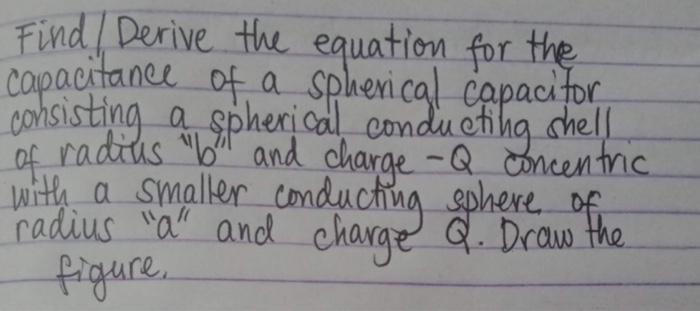 Find/Derive the equation for the
capacitance of a spherical capacitor
consisting a spherical conducting shell
of radius "b" and charge -Q concentric
with a smaller conducting sphere of
radius "a" and charge Q. Draw the
figure.